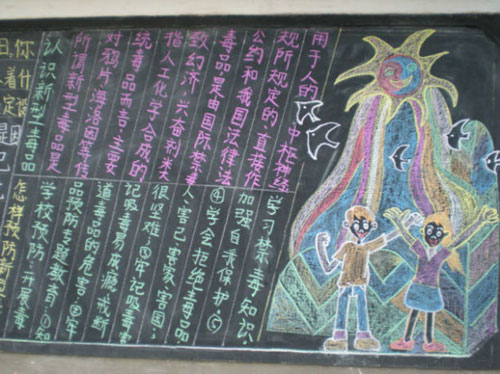 认识新型毒品
所谓新型毒品是
对鸦片海洛因等传
统毒品而言,主要
指人工化学合成的
致幻济、兴奋剂类
毒品是由国际禁毒
公约和我国法律法
规所规定的、直接作
用于人的中枢神经
怎样预防新型
学校预防:开展毒
品预防专题教育:①知
道毒品的危害;②牢
记吸毒易成瘾,戒断
很坚难;③牢记吸毒害
人害己、害家、害国;
④学会拒绝毒品;⑤
加强自我保护。
学习禁毒知识,